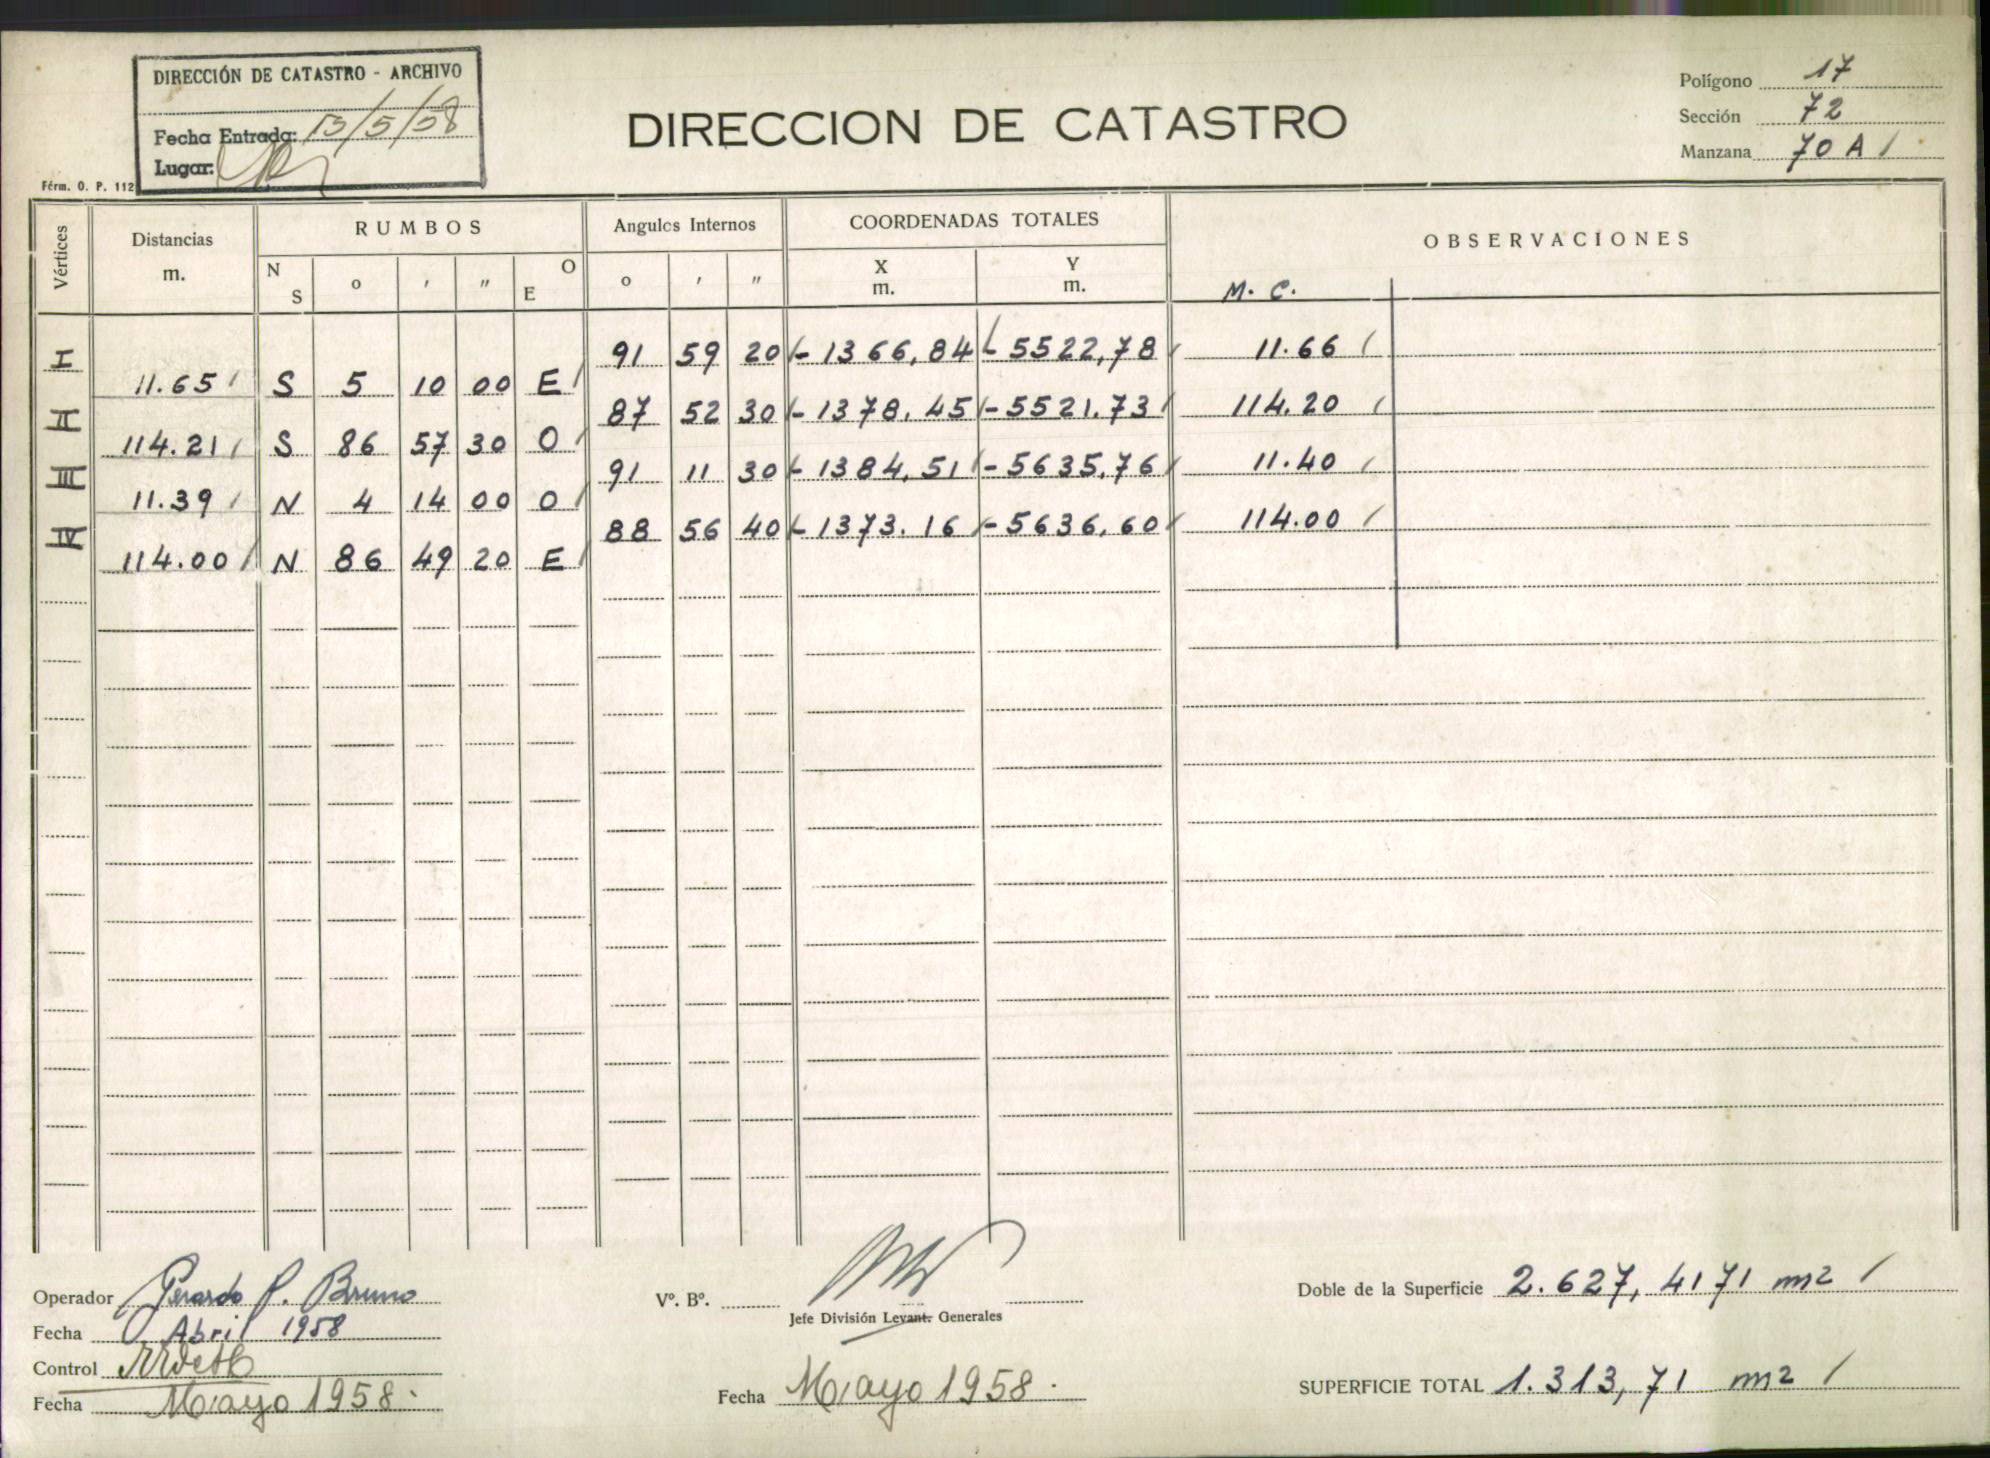 DIRECCIÓN DE CATASTRO - ARCHIVO
Fecha Entrada: 13/5/58
Lugar:
Férm. O. P. 112
DIRECCION DE CATASTRO
Polígono 17
Sección 72
Manzana 70 A
Vértices Distancias m. RUMBOS Angulos Internos COORDENADAS TOTALES OBSERVACIONES
N S o ' " O E o ' " X m. Y m. M. C.
I 91 59 20 - 1366,84 - 5522,78 11.66
11.65 S 5 10 00 E
II 87 52 30 - 1378.45 - 5521.73 114.20
114.21 S 86 57 30 O
III 91 11 30 - 1384,51 - 5635,76 11.40
11.39 N 4 14 00 O
IV 88 56 40 - 1373.16 - 5636,60 114.00
114.00 N 86 49 20 E
Operador Gerardo P. Bruno
Fecha Abril 1958
Control
Fecha Mayo 1958.
Vº. Bº.
Jefe División Levant. Generales
Fecha Mayo 1958.
Doble de la Superficie 2.627,4171 m2
SUPERFICIE TOTAL 1.313,71 m2